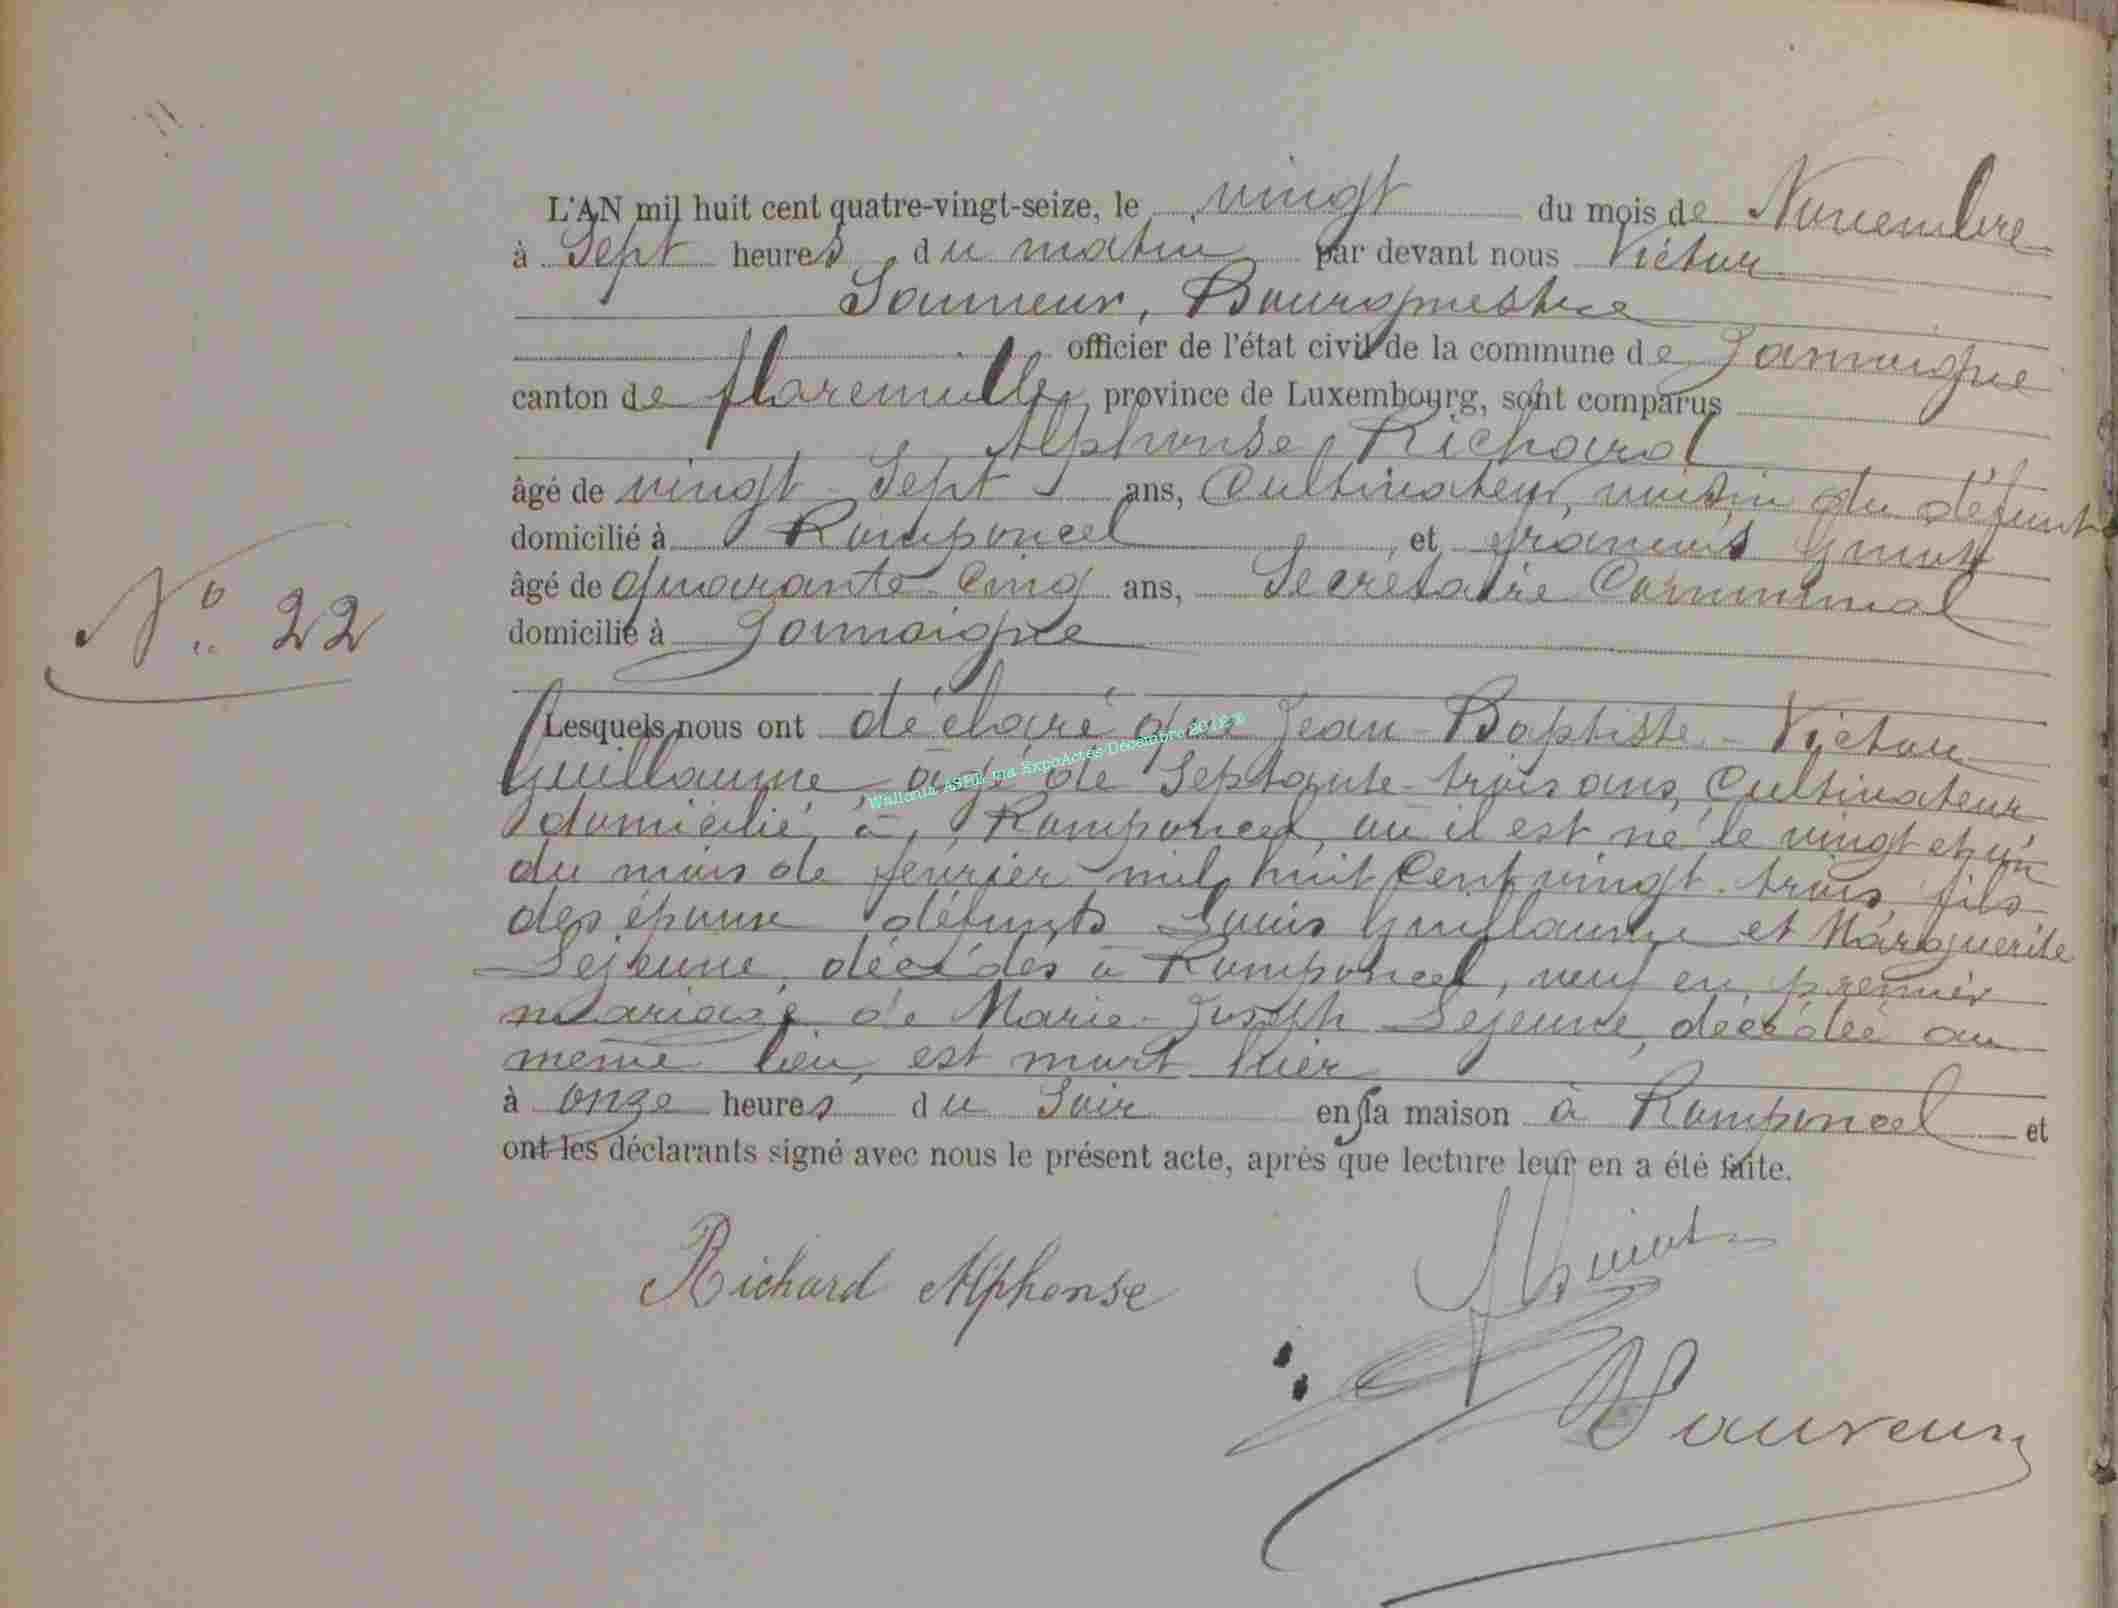 L'AN mil huit cent quatre-vingt-seize, le vingt du mois de Novembre
à Sept heures du matin par devant nous Victor
Bourgmestre
officier de l'état civil de la commune de Jamoigne
canton de florenville, province de Luxembourg, sont comparus
Alphonse Richard
âgé de vingt-Sept ans, Cultivateur, voisin du défunt
domicilié à Romponcel, et françois
âgé de quarante-Cinq ans, Secrétaire Communal
domicilié à Jamoigne
Nº 22
Lesquels nous ont déclaré que Jean-Baptiste-Victor
Guillaume, âgé de Septante-trois ans, Cultivateur
domicilié à Romponcel, où il est né le vingt et un
du mois de fevrier mil huit Cent vingt-trois, fils
des époux défunts Louis Guillaume et Marguerite
Lejeune, décédés à Romponcel, veuf en premier
mariage de Marie-Joseph Lejeune, décédée au
même lieu, est mort hier
à onze heures du Soir en sa maison à Romponcel et
ont les déclarants signé avec nous le présent acte, après que lecture leur en a été faite.
Richard Alphonse
Wallonia ASBL via ExpoActes Décembre 2012